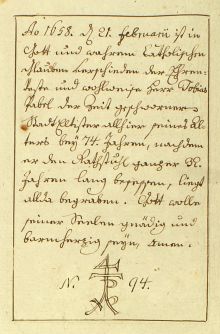 Ao 1658. d. 21. februarii ist in
Gott und wahrem Catholischen
Glauben verschieden der Ehren-
veste und wohlweise Herr Tobias
Pabel der Zeit geschworner
Stadtältister allhier seines Al-
ters bey 74. Jahren, nachdem
er den Rathstuhl ganzer
Jahren lang besessen, liegt
allda begraben. Gott wolle
seiner Seelen gnädig und
barmherzig seyn, Amen.
N. 94.